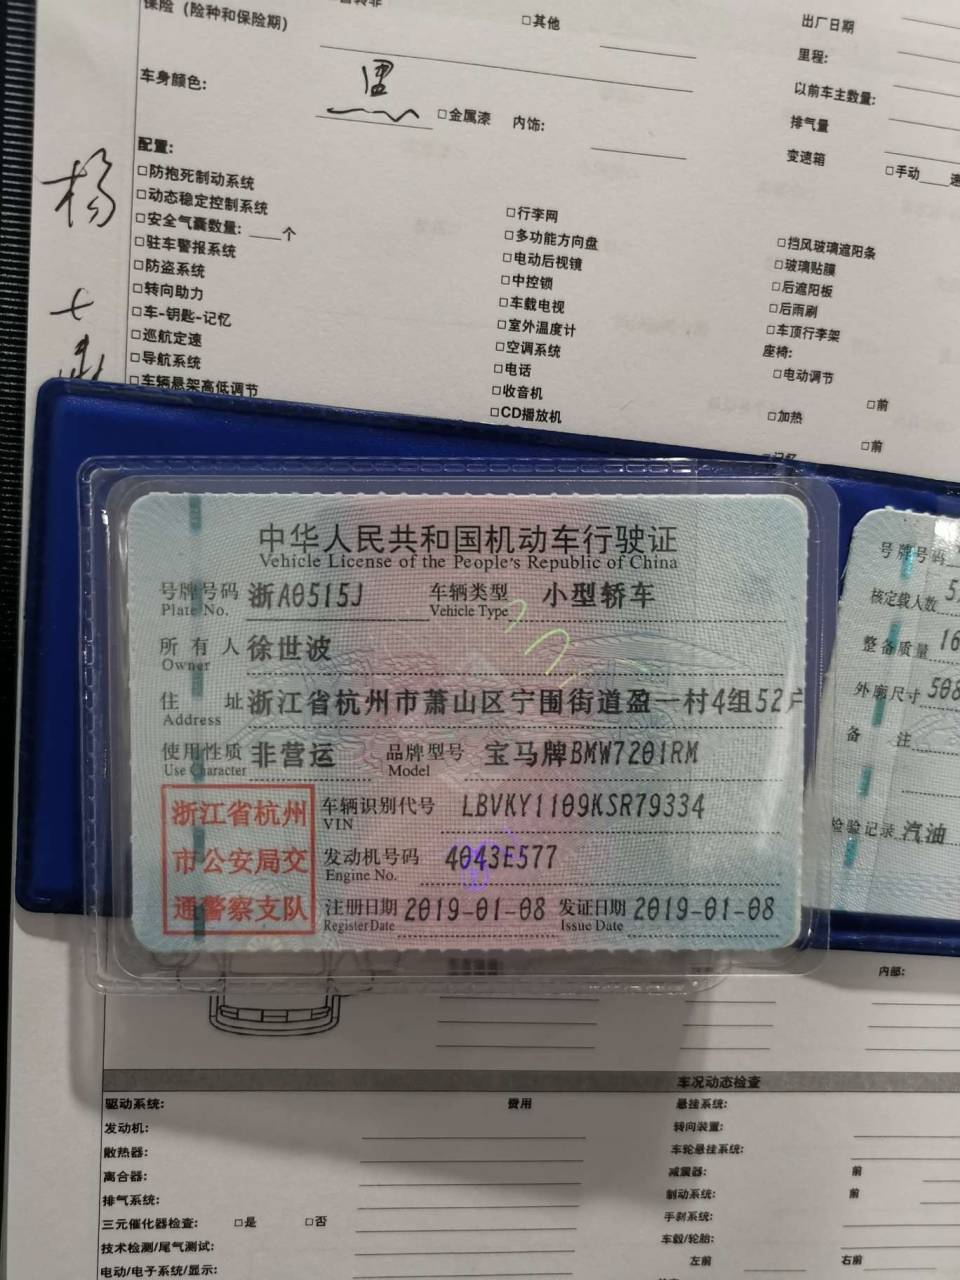 保险（险种和保险期）
□其他
出厂日期
里程:
车身颜色: 黑 □金属漆 内饰:
以前车主数量:
排气量
变速箱 □手动____速
杨
配置:
□防抱死制动系统
□动态稳定控制系统
□安全气囊数量: ____个
□驻车警报系统
□防盗系统
□转向助力
□车-钥匙-记忆
□巡航定速
□导航系统
□车辆悬架高低调节
□行李网
□多功能方向盘
□电动后视镜
□中控锁
□车载电视
□室外温度计
□空调系统
□电话
□收音机
□CD播放机
□挡风玻璃遮阳条
□玻璃贴膜
□后遮阳板
□后雨刷
□车顶行李架
座椅:
□电动调节
□前
□加热
□前
中华人民共和国机动车行驶证
Vehicle License of the People's Republic of China
号牌号码 浙A0515J 车辆类型 小型轿车
Plate No. Vehicle Type
所有人 徐世波
Owner
住址 浙江省杭州市萧山区宁围街道盈一村4组52户
Address
使用性质 非营运 品牌型号 宝马牌BMW7201RM
Use Character Model
浙江省杭州
市公安局交
通警察支队
车辆识别代号 LBVKY1109KSR79334
VIN
发动机号码 4043E577
Engine No.
注册日期 2019-01-08 发证日期 2019-01-08
Register Date Issue Date
号牌号码
核定载人数 5
整备质量 16
外廓尺寸 508
备注
检验记录 汽油
内部:
车况动态检查
驱动系统: 费用
发动机:
散热器:
离合器:
排气系统:
三元催化器检查: □是 □否
技术检测/尾气测试:
电动/电子系统/显示:
悬挂系统:
转向装置:
车轮悬挂系统:
减震器: 前
制动系统: 前
手刹系统:
车毂/轮胎:
左前 右前